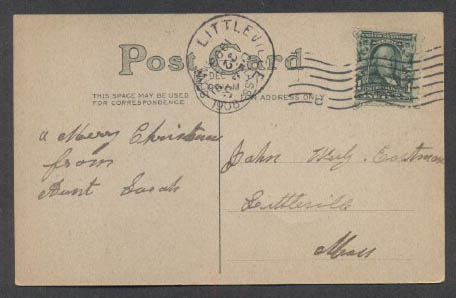 Post Card
THIS SPACE MAY BE USED
FOR CORRESPONDENCE
OR ADDRESS ONLY
LITTLEVILLE
DEC
1908
MASS.
1
a Merry Christmas
from
Aunt Sarah
John Eastman
Littleville
Mass